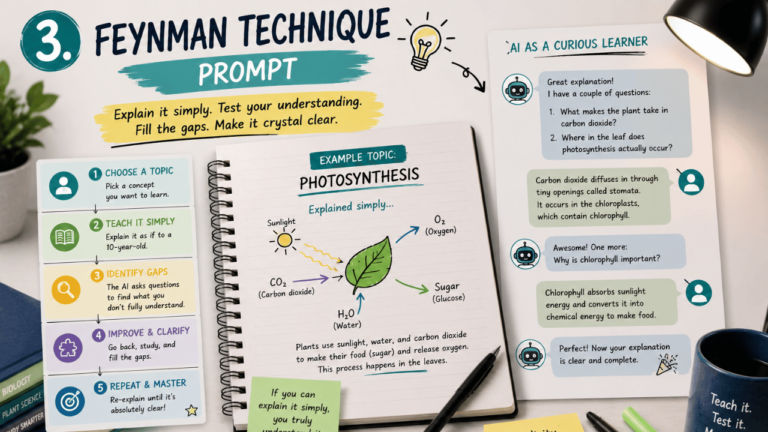 3.
FEYNMAN TECHNIQUE
PROMPT
Explain it simply. Test your understanding.
Fill the gaps. Make it crystal clear.
1 CHOOSE A TOPIC
Pick a concept
you want to learn.
2 TEACH IT SIMPLY
Explain it as if to a
10-year-old.
3 IDENTIFY GAPS
The AI asks questions
to find what you
don't fully understand.
4 IMPROVE & CLARIFY
Go back, study, and
fill the gaps.
5 REPEAT & MASTER
Re-explain until it's
absolutely clear!
EXAMPLE TOPIC:
PHOTOSYNTHESIS
Explained simply...
Sunlight
O₂
(Oxygen)
CO₂
(Carbon dioxide)
Sugar
(Glucose)
H₂O
(Water)
Plants use sunlight, water, and carbon dioxide
to make their food (sugar) and release oxygen.
This process happens in the leaves.
If you can
explain it simply,
you truly
AI AS A CURIOUS LEARNER
Great explanation!
I have a couple of questions:
1. What makes the plant take in
carbon dioxide?
2. Where in the leaf does
photosynthesis actually occur?
Carbon dioxide diffuses in through
tiny openings called stomata.
It occurs in the chloroplasts,
which contain chlorophyll.
Awesome! One more:
Why is chlorophyll important?
Chlorophyll absorbs sunlight
energy and converts it into
chemical energy to make food.
Perfect! Now your explanation
is clear and complete.
BIOLOGY
PLANT SCIENCE
STUDY SMARTER
Teach it.
Test it.